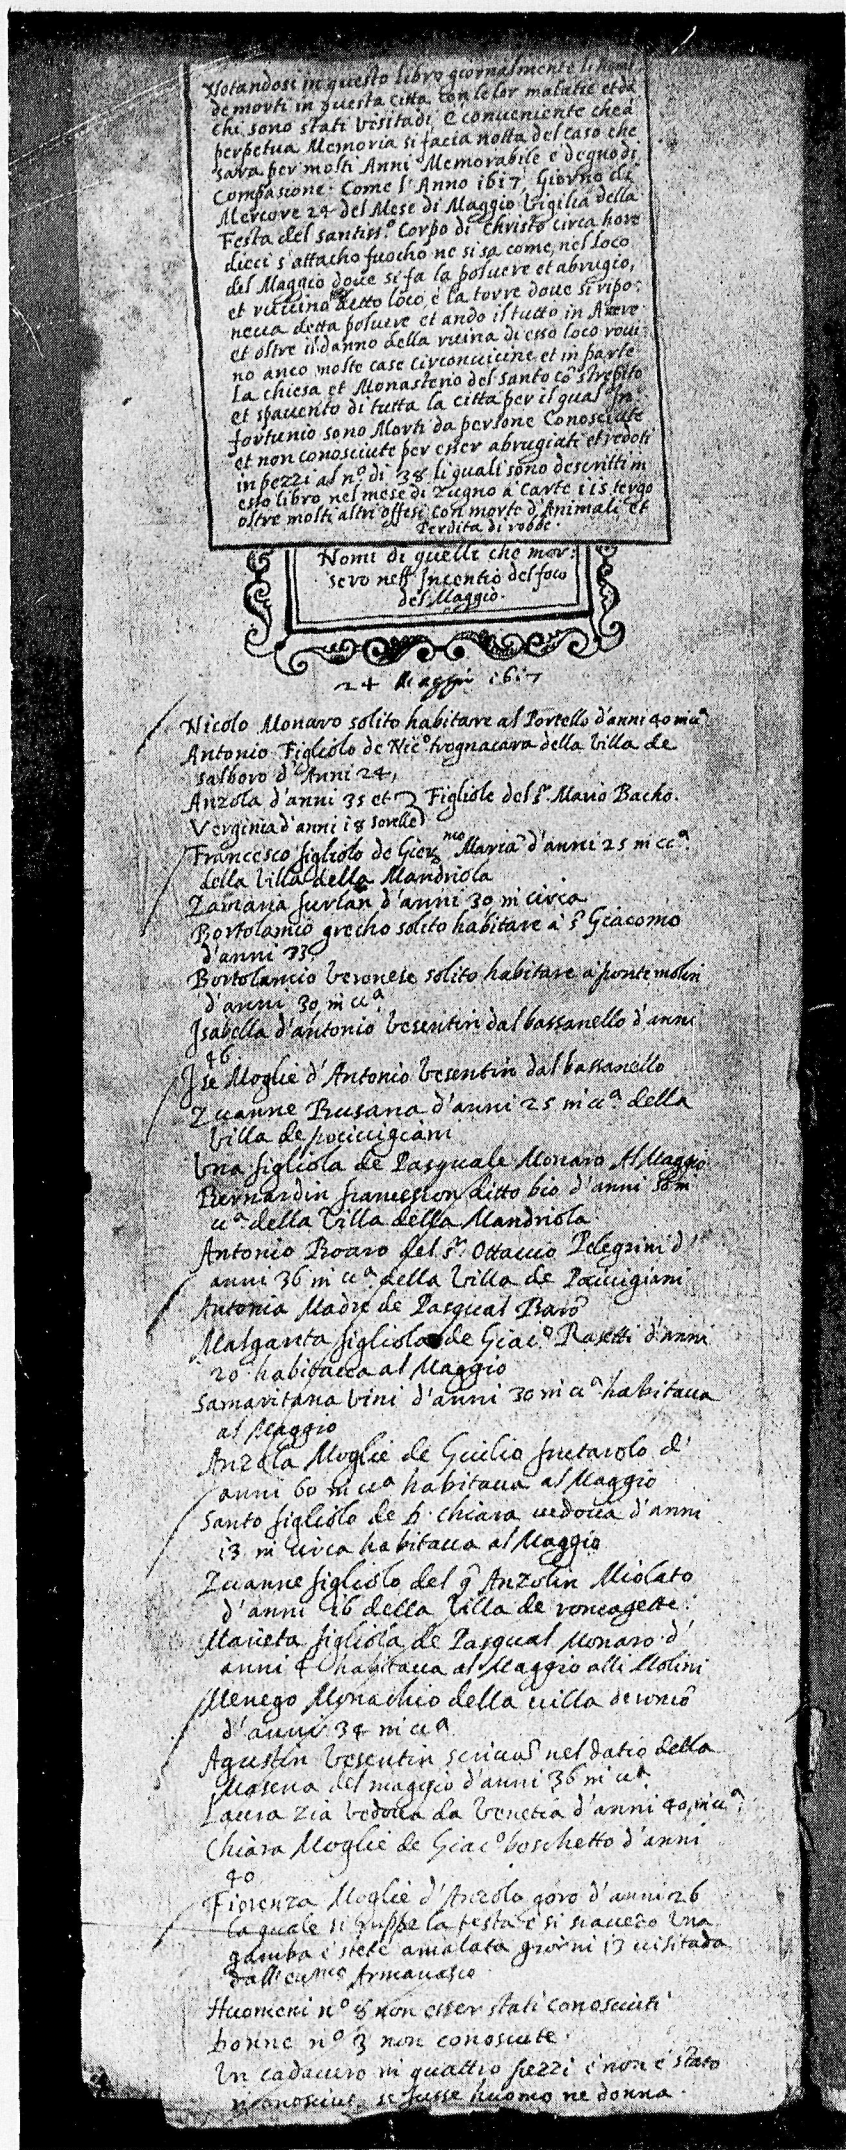 Notandosi in questo libro giornalmente li nomi
de morti in questa citta con le lor malatie et da
chi sono stati visitadi e conveniente che à
perpetua Memoria si facia notta del caso che
sara per molti Anni Memorabile e degno di
Compasione. Come l'Anno 1617, Giorno di
Mercore 24 del Mese di Maggio Vigilia della
Festa del santiss.º Corpo di Christo circa hore
dieci s'attacho fuocho ne si sa come, nel loco
del Maggio doue si fa la poluere et abrugio,
et ruuino detto loco, e la torre doue si ripo:
neua detta poluere et ando il tutto in Aere
et oltre il danno della ruina di esso loco roui:
no anco molte case circonuicine et in parte
La chiesa et Monasterio del santo cõ strepito
et spauento di tutta la citta per il qual In:
fortunio sono Morti da persone Conosciute
et non conosciute per esser abrugiati et redoti
in pezzi al nº di 38 li quali sono descritti in
esso libro nel mese di Zugno à carte 115 tergo
oltre molti altri offesi con morte d'Animali et
Perdita di robbe.
Nomi di quelli che mor:
sero nell Incentio del foco
del Maggio.
24 Maggio 1617
Nicolo Monaro solito habitare al Portello d'anni 40 in cª
Antonio Figliolo de Nicº trognacara della Villa de
salboro d'Anni 24,
Anzola d'anni 35 et Figliole del sʳ. Mario Bacho.
Verginia d'anni 18 sorelle
Francesco figliolo de Gier.ᵐᵒ Maria d'anni 25 in ccª.
della Villa della Mandriola
Zamaria furlan d'anni 30 in circa
Bortolamio grecho solito habitare à sᵗ Giacomo
d'anni 33.
Bortolamio Veronese solito habitare a ponte molin
d'anni 30 in cicª
Isabella d'Antonio Vesentin dal bassanello d'anni
46
Ise Moglie d'Antonio Vesentin dal bassanello
Zuanne Rusana d'anni 25 in cicª della
Villa de pociuigiani
Una figliola de Pasquale Monaro Al Maggio
Bernardin francescon ditto bio d'anni 50 in
cicª della Villa della Mandriola
Antonio Boaro del sʳ. Ottauio Pelegrini d'
anni 36 in cicª della Villa de Pociuigiani
Antonia Madre de Pasqual Barõ
Malgarita figliola de Giacº Rasetti d'anni
20 habitaua al Maggio
Samaritana Vini d'anni 30 in cicª habitaua
al Maggio
Anzola Moglie de Giulio frutarolo d'
anni 60 in cicª habitaua al Maggio
Santo figliolo de D. Chiara uedoua d'anni
13 in circa habitaua al Maggio
Zuanne figliolo del q̃ Anzolin Miolato
d'anni 16 della Villa de roncagette.
Marieta figliola de Pasqual Monaro d'
anni 4 habitaua al Maggio alli Molini
Menego Monachio della uilla
d'anni 34 in cicª
Agustin Vesentin nel datio della
Masena del maggio d'anni 36 in cicª
Laura zia Vedoua da Venetia d'anni 40, in cicª
Chiara Moglie de Giacº boschetto d'anni
40
Fiorenza Moglie d'Anzolo goro d'anni 26
la quale si ruppe la testa e si una
gamba e stete amalata giorni 13 uisitada
dall Armauasco
Huomeni nº 8 non esser stati conosciuti
Donne nº 3 non conosciute.
Un cadauero in quattro pezzi e non e stato
se fusse huomo ne donna.